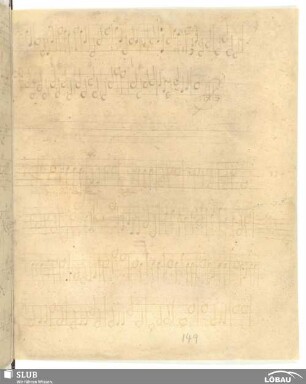 149
SLUB
Wir führen Wissen.
LÖBAU